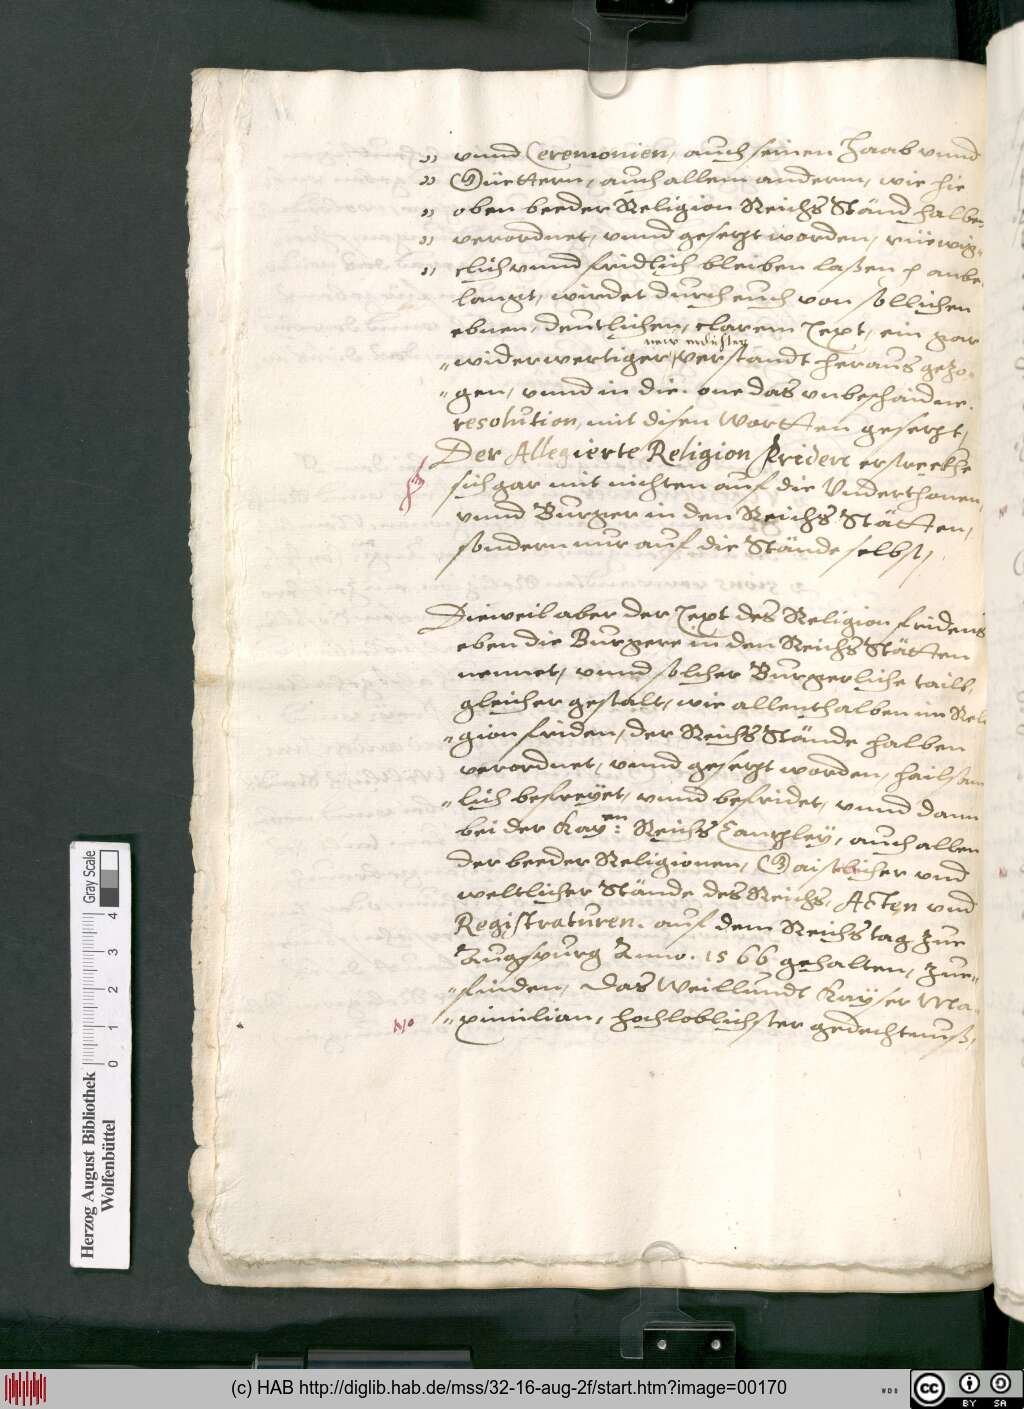 " vnnd Ceremonien, auch seinen Haab vnnd
" Güettern, auch allem anderm, wie hie
" oben beeder Religion Reichs Ständ halbe-
" verordnet, vnnd gesezt worden, rüewig-
" clich vnnd fridlich bleiben laßen p anbe-
langt, wirdet durch euch von sollichen
ebnen, deutlichen, clarem Text, ein gar
new erdichter
" widerwertiger verstandt herausgezo-
" gen, vnnd in die one das vnbeschaidne
resolution, mit disen Wortten gesezt,
Der Allegierte Religion Friden erstreckhe
sich gar mit nichten auf die Vnderthonen,
vnnd Burger in den Reichs Stätten,
sondern nur auf die Stände selbst,
Dieweil aber der Text des Religion fridens
eben die Burgere in den Reichs Stätten
nennet, vnnd solcher Burgerliche tailb,
gleicher gestalt, wie allenthalben im Reli
" gion friden, der Reichs Stände halben
verordnet, vnnd gesezt worden, hailsam
" lich befreyet, vnnd befridet, vnnd dann
bei der Kayen: Reichs Canzley, auch allen
der beeder Religionen, Gaistlicher vnd
weltlicher Stände des Reichs, Acten vnd
Registraturen. auf dem Reichstag zue
Augspurg Anno. 1566 gehalten, zue-
" finden, das Weillundt Kayser Ma-
No " ximilian, hochloblichster gedechtnuß,
Herzog August Bibliothek
Wolfenbüttel
0 1 2 3 4
Gray Scale
(c) HAB http://diglib.hab.de/mss/32-16-aug-2f/start.htm?image=00170
WDB
cc BY SA